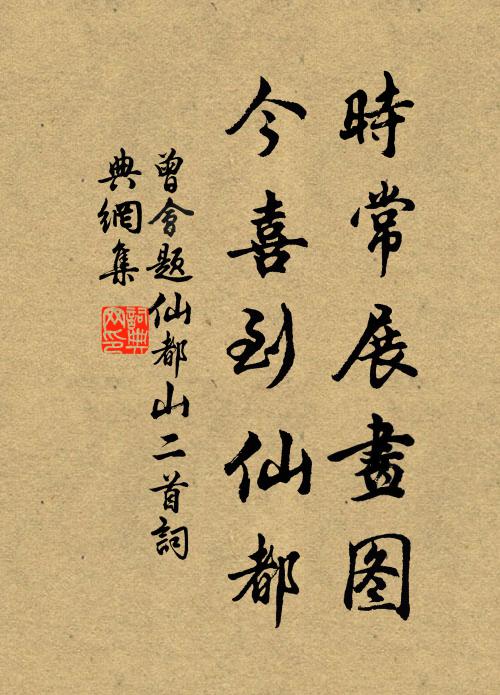 時常展畫图
今喜到仙都
曾會題仙都山二首詞
典網集
詞典
网印